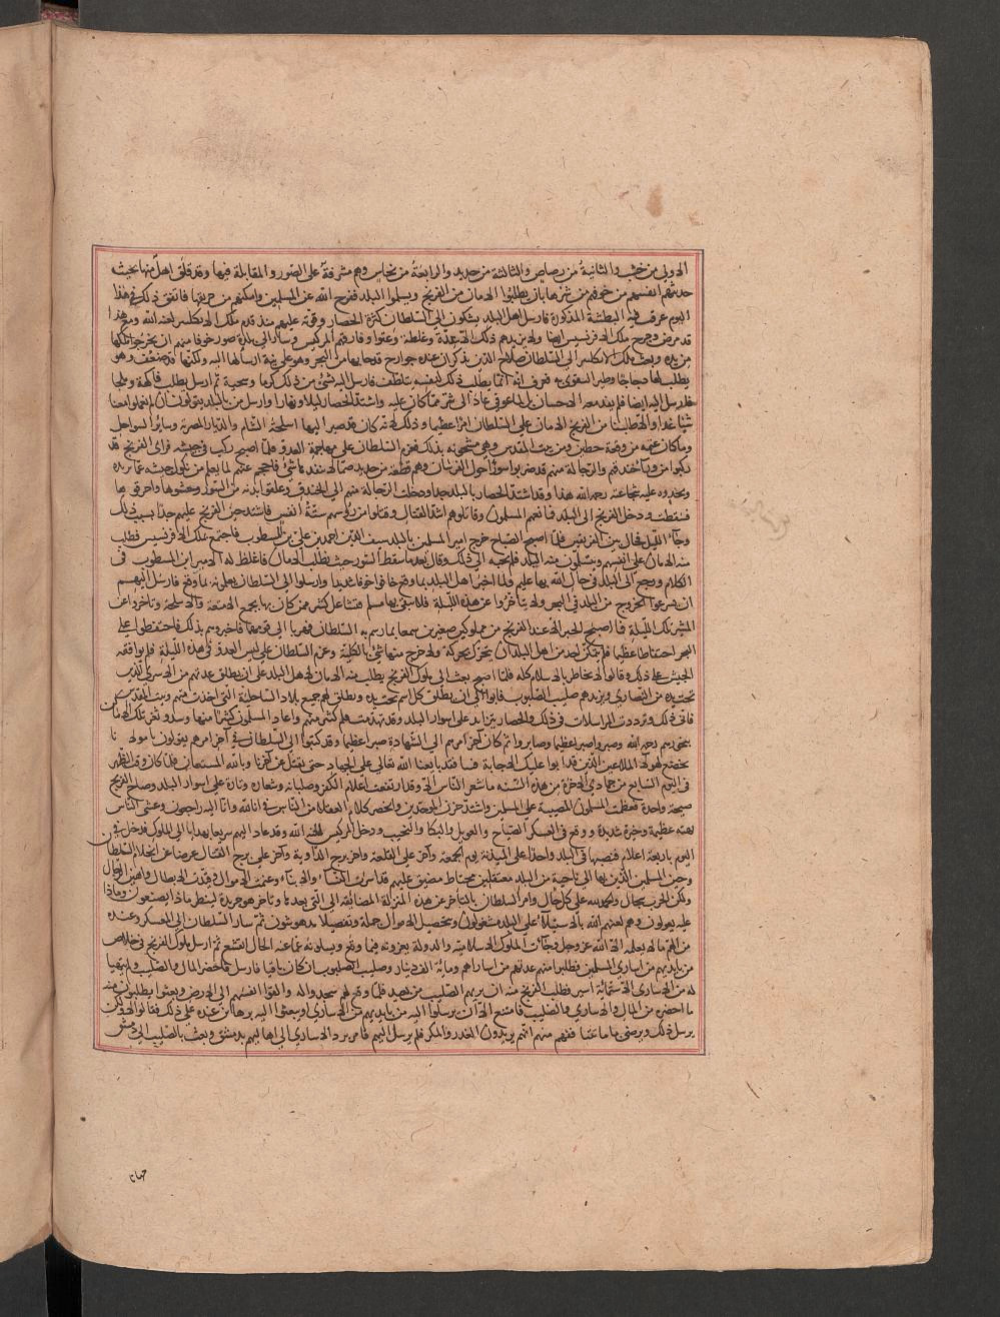 الاولى من خشب والثانية من رصاص والثالثة من حديد والرابعة من نحاس وهى مشرفة على السور والمقابلة فيها وقد قلق اهل منها بحيث
حدثتهم انفسهم من خوفهم من شرها بان يطلبوا الامان من الفرنج ويسلموا البلد ففرج الله عن المسلمين وامكنهم من حريقها فاتفق ذلك فى هذا
اليوم غرق هذه البطشة المذكورة فارسل اهل البلد يشكون الى السلطان كثرة الحصار وقوته عليهم منذ قدم ملك الانكلتير لعنه الله ومع هذا
قد مرض وجرح ملك الافرنسيس ايضا ولا يزيدهم ذلك الا شدة وغلظة وعتوا وفارقهم المركيس وسار الى بلده صور خوفا منهم ان يخرجوا ملكها
من يده وبعث ملك الانكلتير الى السلطان صلاح الدين يذكر ان عنده جوارح قد جا بها من البحر وهو على نية ارسالها اليه ولكنها قد ضعفت وهو
يطلب لها دجاجا وطيرا لتتقوى به فعرف انه انما يطلب ذلك لنفسه يتلطف فارسل اليه شئ من ذلك كرما وسجية ثم ارسل يطلب فاكهة وثلجا
فارسل اليه ايضا فلم يفد معه الاحسان بل لما عوفى عاد الى شر مما كان عليه واشتد الحصار ليلا ونهارا وارسل من بالبلد يقولون ان لم تعملوا معنا
شيئا غدا والا طلبنا من الفرنج الامان فشق على السلطان امرا عظيما وذلك لانه كان قد صير اليها اسلحة الشام والديار المصرية وسائر السواحل
وما كان غنمه من وقعة حطين ومن بيت المقدس وهى مشحونة بذلك فعزم السلطان على مهاجمة العدو فلما اصبح ركب فى جيشه فراى الفرنج قد
ركبوا من وراء خندقهم والرجالة منهم قد ضربوا سورا حول الفرسان وهم قطعة من حديد صماء لا ينفذ فيها شئ فاحجم عنهم لما يعلم من نكول جيشه عما يريده
وتحدوه عليه شجاعته رحمه الله هذا وقد اشتد الحصار بالبلد جدا ودخلت الرجالة منهم الى الخندق وعلقوا بدنة من السور وحشوها واحرقوها
فسقطت ودخل الفرنج الى البلد فما نعهم المسلمون وقاتلوهم اشد القتال وقتلوا من رؤسهم ستة انفس فاشتد حنق الفرنج عليهم جدا بسبب ذلك
وجاء الليل فحال بين الفريقين فلما اصبح الصباح خرج امير المسلمين بالبلد سيف الدين احمد بن على بن المسطوب فاجتمع بملك الافرنسيس فطلب
منه الامان على انفسهم ويتسلمون منه البلد فلم يجبه الى ذلك وقال بعد ما سقط السور جيت تطلب الامان فاغلظ له الامير ابن المسطوب فى
الكلام ورجع الى البلد فى حال الله بها عليم ولما اخبر اهل البلد بما وقع خافوا خوفا شديدا وارسلوا الى السلطان يعلمونه بما وقع فارسل اليهم
ان يسرعوا الخروج من البلد فى البحر ولا يتأخروا عن هذه الليلة فلا يبقى بها مسلم فتشاغل كثير ممن كان بها بجمع الامتعة والاسلحة وتاخروا عن
المسير تلك الليلة فما اصبح الخبر الا عند الفرنج من مملوكين صغيرين سمعا بما رسم به السلطان فهربا الى قومهما فاخبروهم بذلك فاحتفظوا على
البحر احتفاظا عظيما فلم يتمكن احد من اهل البلد ان يتحرك بحركة ولا خرج منها شئ بالكلية وعزم السلطان على كبس العدو فى هذه الليلة فلم يوافقه
الجيش على ذلك وقالوا لا نخاطر بالاسلام كله فلما اصبح بعث الى ملوك الفرنج يطلب منهم الامان لاهل البلد على ان يطلق عدتهم من الاسرى الذين
تحت يده من النصارى ويزيدهم صليب الصلبوت فابوا الا ان يطلق كل اسير تحت يده ويطلق لهم جميع بلاد الساحلية التى اخذت منهم وبيت المقدس
فابى ذلك وترددت المراسلات فى ذلك والحصار يتزايد على اسوار البلد وقد تهدمت ثلم كثير منهم واعاد المسلمون كثيرا منها وسدوا ثغر تلك الاماكن
بنحورهم رحمهم الله وصبروا صبرا عظيما وصابروا ثم كان آخر امرهم الى الشهادة صبرا عظيما وقد كتبوا الى السلطان فى آخر امرهم يقولون يا مولانا
لا تخضع لهولاء الملاعين الذين قد ابوا عليك الاجابة فما فقد بايعنا الله تعالى على الجهاد حتى نقتل عن آخرنا وبالله المستعان فلما كان وقت الظهر
فى اليوم السابع من جمادى الاخرة من هذه السنة ما شعر الناس الا وقد ارتفعت اعلام الكفر وصلبانه وشعاره وناره على اسوار البلد وصاح الفرنج
صيحة واحدة فعظمت عند المسلمين المصيبة على المسلمين واشتد حزن الموحدين وانحصر كلام العقلاء من الناس فى انا لله وانا اليه راجعون وغشى الناس
بهتة عظيمة وحيرة شديدة ووقع فى العسكر الصياح والعويل والبكا والنحيب ودخل المركيس لعنه الله وقد عاد اليهم سريعا بهدايا الى الملوك فدخل فى
اليوم باربعة اعلام فنصبها فى البلد واحدا على المئذنة يوم الجمعة وآخر على القلعة وآخر برج الداوية وآخر على برج القتال عوضا عن اعلام السلطان
وحيز المسلمين الذين بها الى ناحية من البلد معتقلين محتاط مضيق عليهم قد اسرت النساء والابناء وغنمت الاموال وقيدت الابطال واهين الرجال
ولكن الحرب سجال والحمد لله على كل حال وامر السلطان بالتأخر عن هذه المنزلة المضايقة الى التى بعدها وتاخر هو جريدة لينظر ماذا يصنعون وماذا
عليه يعولون وهم لعنهم الله بالاستيلاء على البلد مشغولون وبتحصيل الاموال جملة وتفصيلا مدهوشون ثم سار السلطان الى العسكر وعنده
من الهم ما لا يعلمه الا الله عز وجل وجاءت الملوك الاسلامية والدولة يعزونه فيما وقع ويسلونه عما عنه الحال انقشع ثم ارسل ملوك الفرنج فى خلاص
من بايديهم من اسارى المسلمين فطلبوا منه عدتهم من اسراهم ومائة الف دينار وصليب الصلبوت ان كان باقيا فارسل فاحضر المال والصليب ولم يتهيأ
له من الاسارى الا ستمائة اسير فطلب الفرنج منه ان يريهم الصليب من بعيد فلما رفع لهم سجدوا له والقوا انفسهم الى الارض وبعثوا يطلبون منه
ما احضره من المال والاسارى والصليب فامتنع الا ان يرسلوا اليه من بايديهم من الاسارى او يبعثوا اليه برهائن عنده على ذلك فقالوا لا ولكن
يرسل ذلك ويرضى بامانتنا ففهم منهم انهم يريدون الغدر والمكر فلم يرسل اليهم فامر برد الاسارى الى اهاليهم بدمشق وبعث بالصليب الى دمشق